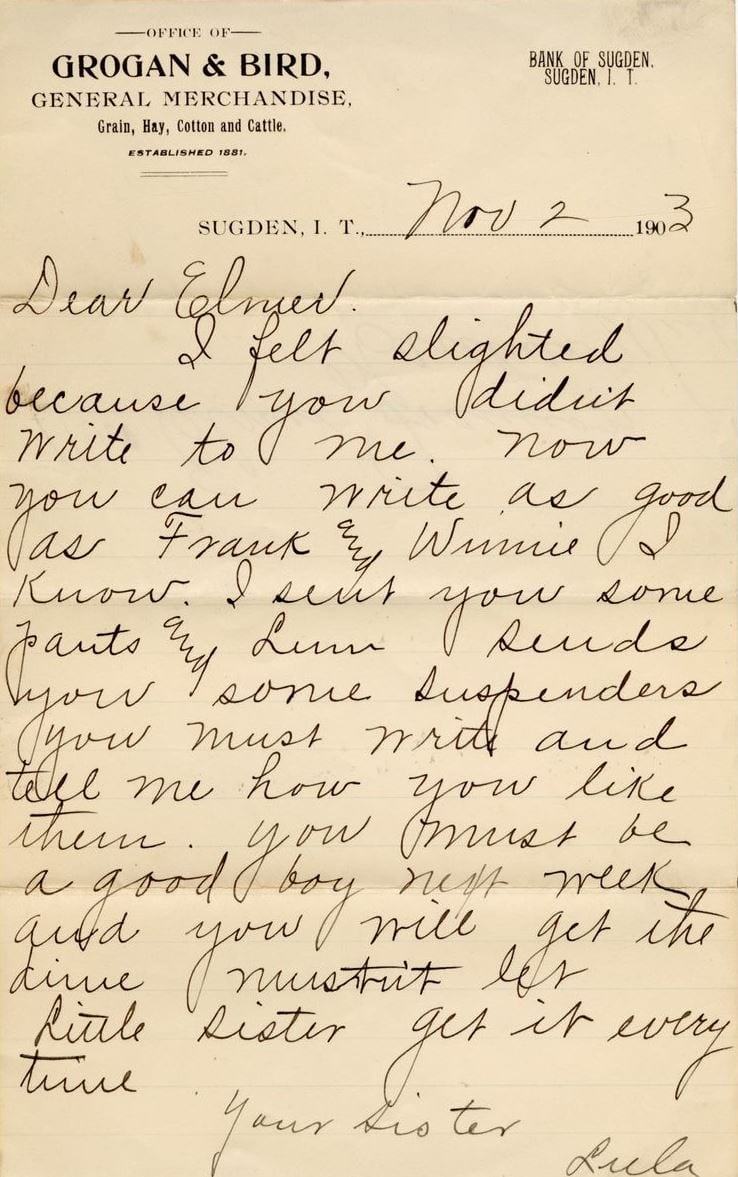 OFFICE OF
GROGAN & BIRD,
GENERAL MERCHANDISE,
Grain, Hay, Cotton and Cattle.
ESTABLISHED 1881.
BANK OF SUGDEN,
SUGDEN, I. T.
SUGDEN, I. T., Nov 2 1903
Dear Elmer.
I felt slighted
because you didn't
write to me. now
you can write as good
as Frank and Winnie I
know. I sent you some
pants and Lum sends
you some suspenders
you must write and
tell me how you like
them. you must be
a good boy next week
and you will get the
dime mustn't let
Little sister get it every
time
Your sister
Lula